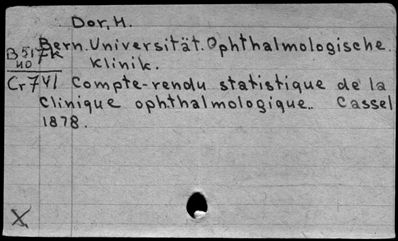 Dor, H.
Bern. Universität. Ophthalmologische.
Klinik.
B517k
40
Cr741
Compte-rendu statistique de la
Clinique ophthalmologique.. Cassel
1878.
X